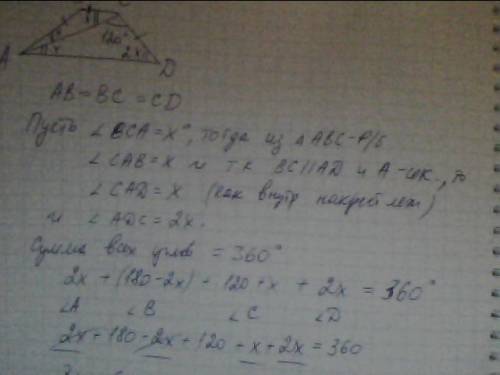 120°
2x
A
D
AB = BC = CD
Пусть ∠BCA = x°, тогда из △ABC - р/б
∠CAB = x и т.к BC||AD и А-сек., то
∠CAD = x (как внутр накрест леж.)
и ∠ADC = 2x.
Сумма всех углов = 360°
2x + (180-2x) + 120 + x + 2x = 360°
∠A ∠B ∠C ∠D
2x + 180 - 2x + 120 + x + 2x = 360